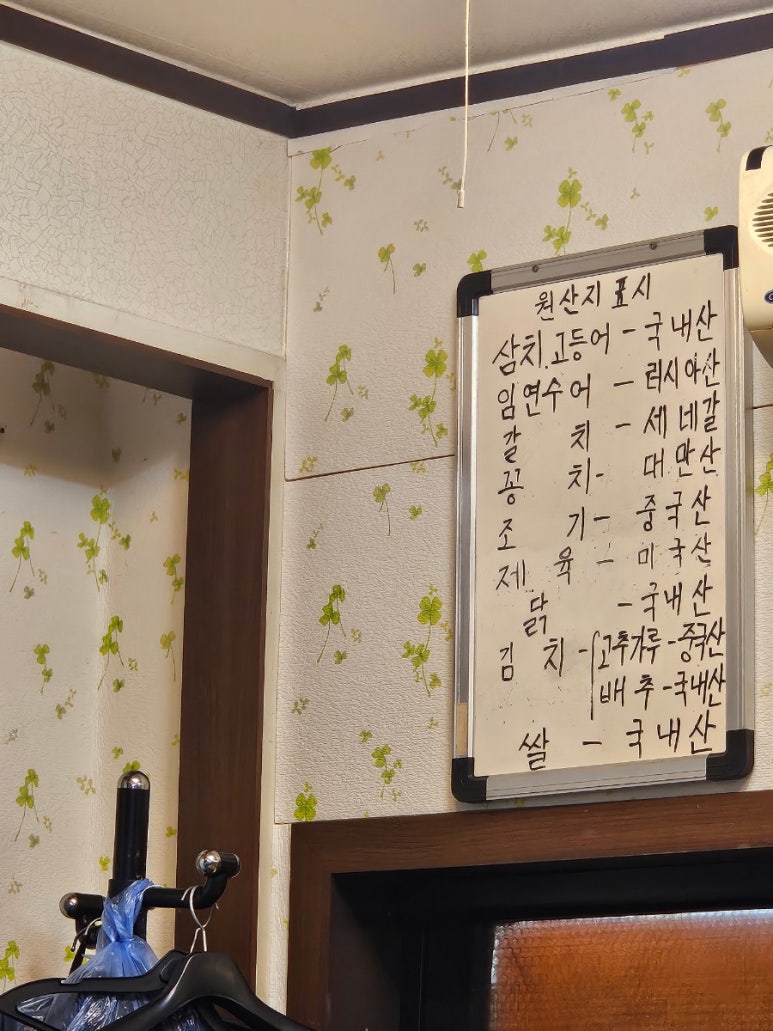 원산지 표시
삼치.고등어 - 국내산
임연수어 - 러시아산
갈치 - 세네갈
꽁치 - 대만산
조기 - 중국산
제육 - 미국산
닭 - 국내산
김치 - 고추가루 - 중국산
배추 - 국내산
쌀 - 국내산